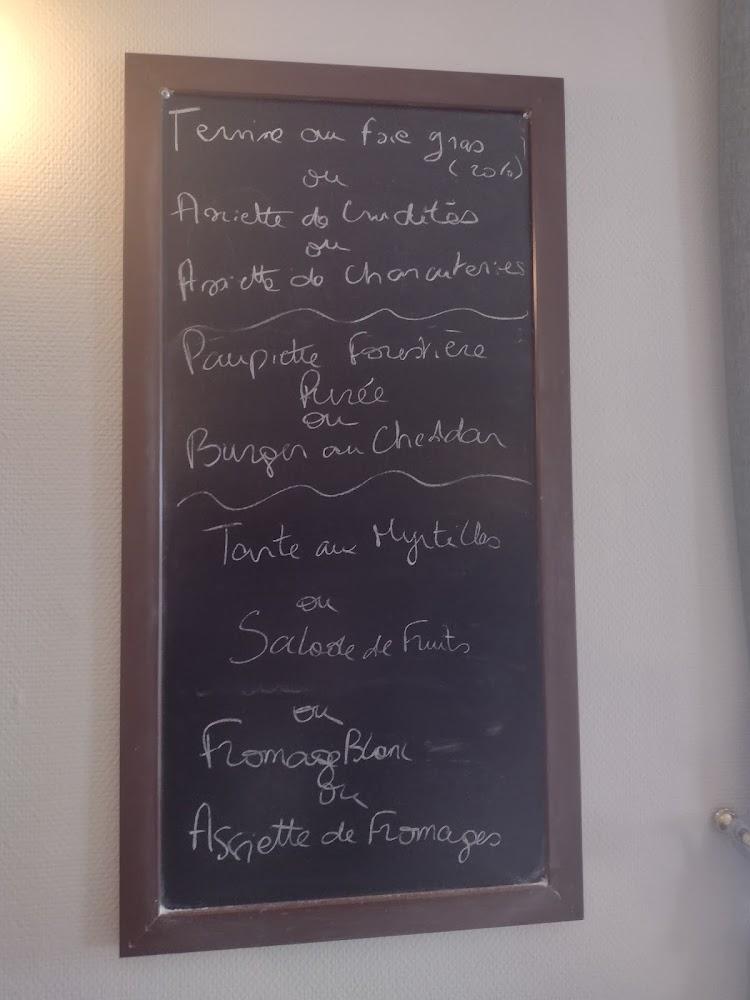 Terrine au foie gras
(20%)
ou
Assiette de Crudités
ou
Assiette de Charcuteries
Paupiette Forestière
Purée
ou
Burger au Cheddar
Tarte aux Myrtilles
ou
Salade de Fruits
ou
Fromage Blanc
ou
Assiette de Fromages